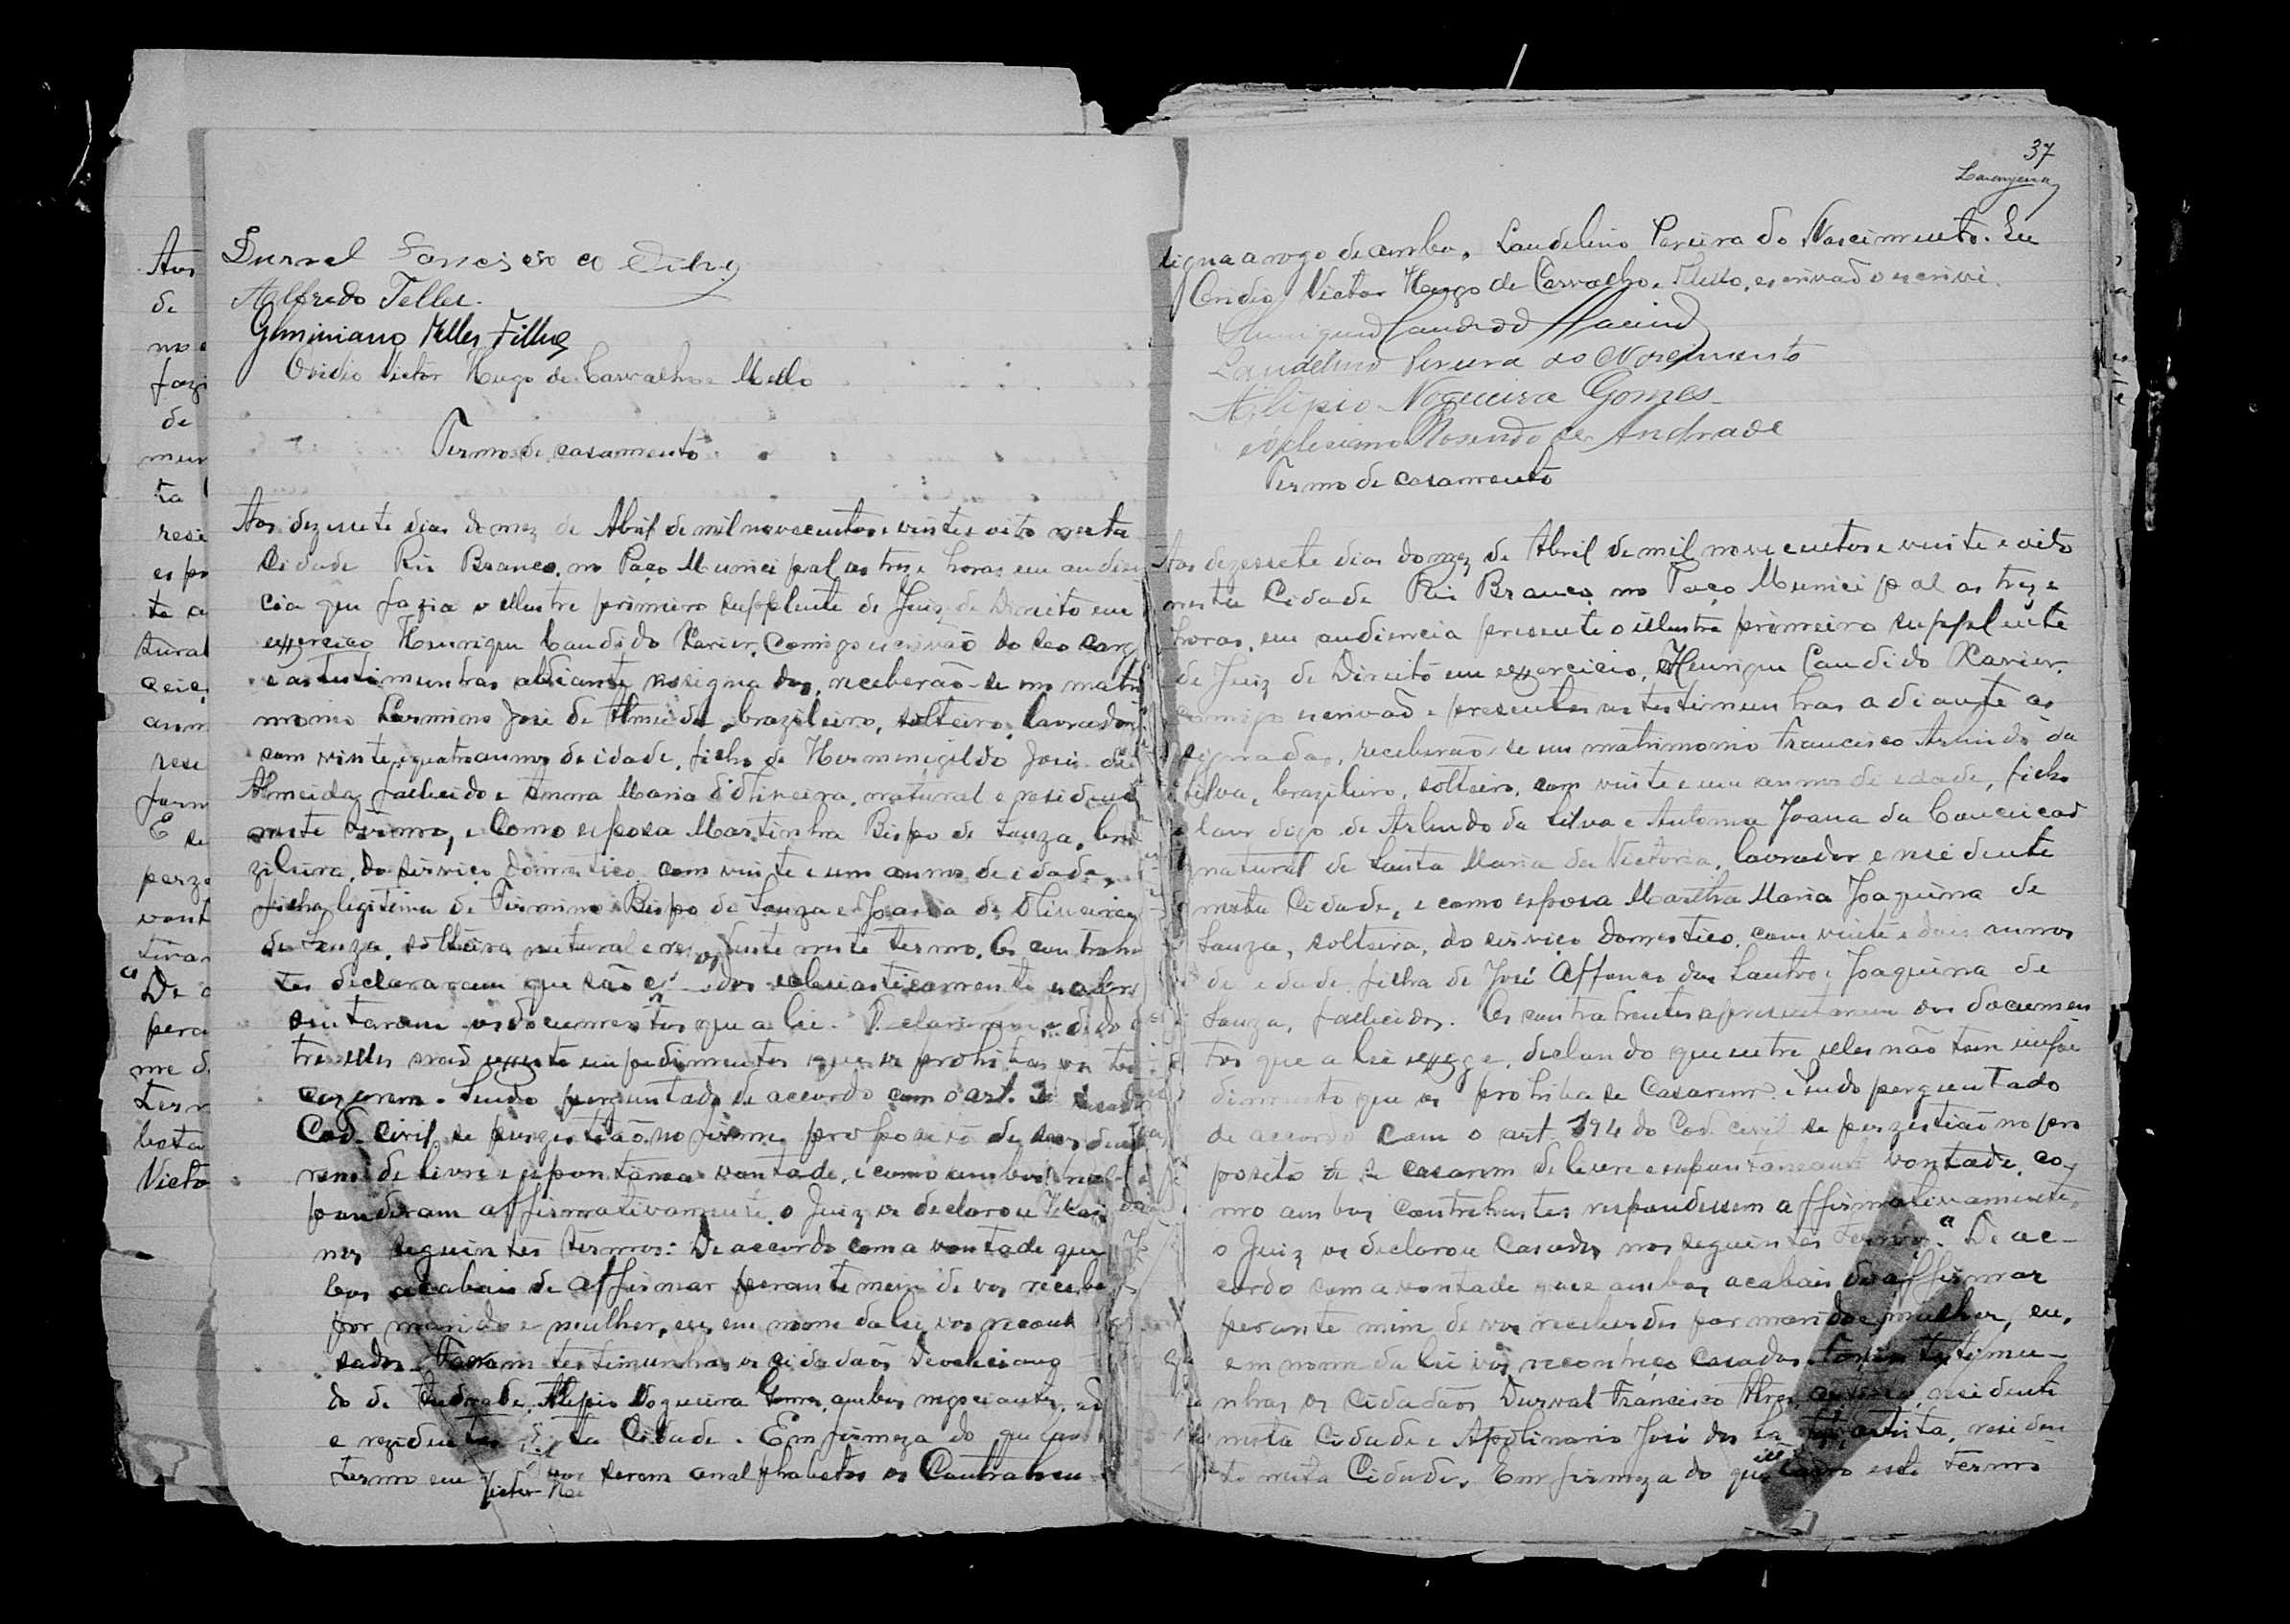 Durval Francisco da Silva
Alfredo Telles.
Geminiano Telles Filho
Ovidio Victor Hugo de Carvalho e Mello
Termo de casamento
Aos dezessete dias do mez de Abril de mil novecentos e vinte e oito nesta
Cidade Rio Branco, no Paço Municipal as treze horas em audien
cia que fazia o illustre primeiro supplente de Juiz de Direito em
exxercicio Henrique Candido Xavier, comigo escrivão do seo cargo
e as testimunhas adiante assignadas, receberão-se em matri
monio Firmino José de Almeida, brazileiro, solteiro, lavrador
com vinte e quatro annos de idade, filho de Hermenigildo José de
Almeida, fallecido e Anna Maria d'Oliveira, natural e residente
neste termo, e como esposa Martinha Bispo de Souza, bra
zileira, do serviço domestico, com vinte e um annos de idade,
filha legitima de Firmino Bispo de Souza e Joanna de Oliveira
de Souza, solteira natural e residente neste termo. Os contrahen
tes declararam que são casados eclesiasticamente e apre
sentaram os documentos que a lei
tre elles não exxiste empedimentos que os prohibas
casarem. Sendo perguntado de acordo com o art.
Cod. Civil, se persistião no firme proposito de
rem de livre e espontanea vontade, e como ambos
ponderam affirmativamente, o Juiz os declarou
nos seguintes termos: De accordo com a vontade que
bos acabais de affirmar perante mim de vos receber
por marido e mulher, eu, em nome da lei, vos reconh
sados. Foram testimunhas os cidadãos Deocleciano
do de Andrade, Alipio Nogueira Gomes, ambos negociantes,
e rezidentes nesta Cidade. Em firmeza do que
termo em que por serem analphabetos os Contrahen
37
Laranjeira
signa a rogo de ambos, Laudelino Pereira do Nascimento. Eu
Ovidio Victor Hugo de Carvalho e Mello, escrivão o escrivi.
Henrique Candido Xavier
Laudelino Pereira do Nascimento
Alipio Nogueira Gomes
Deocleciano Rosendo de Andrade
Termo de casamento
Aos dezessete dias do mez de Abril de mil novecentos e vinte e oito
nesta Cidade Rio Branco no Paço Municipal as treze
horas, em audiencia presente o illustre primeiro supplente
de Juiz de Direito em exxercicio, Henrique Candido Xavier.
comigo escrivão e presentes as testimunhas adiante as
signadas, receberão-se em matrimonio Francisco Arlindo da
Silva, brazileiro, solteiro, com vinte e um annos de edade, filho
lavr digo de Arlindo da Silva e Antonia Joana da Conceicão
natural de Santa Maria da Victoria, lavrador e residente
nesta Cidade, e como esposa Martha Maria Joaquina de
Souza, solteira, do serviço domestico, com vinte e dois annos
de edade, filha de José Affonso dos Santos e Joaquina de
Souza, fallecidos. Os contrahentes apresentaram os documen
tos que a lei exxege, declando que entre elles não tem impe
dimento que os prohiba se casarem. Sendo perguntado
de accordo com o art. 194 do Cod. civil se persestião no pro
posito de se casarem de livre e espontaneam vontade, co
mo ambos contrahentes respondessem affirmativamente,
o Juiz os declarou casados nos seguintes termos: "De ac-
cordo com a vontade que ambos acabais de affirmar
perante mim de vos receberdes por marido e mulher, eu,
em nome da lei vos reconheço casados. Foram testimu-
nhas os cidadãos Durval Francisco Alves, artista, residente
nesta Cidade e Apolinario José dos Santos, artista, residen
te nesta Cidade. Em firmeza do que lavro este termo